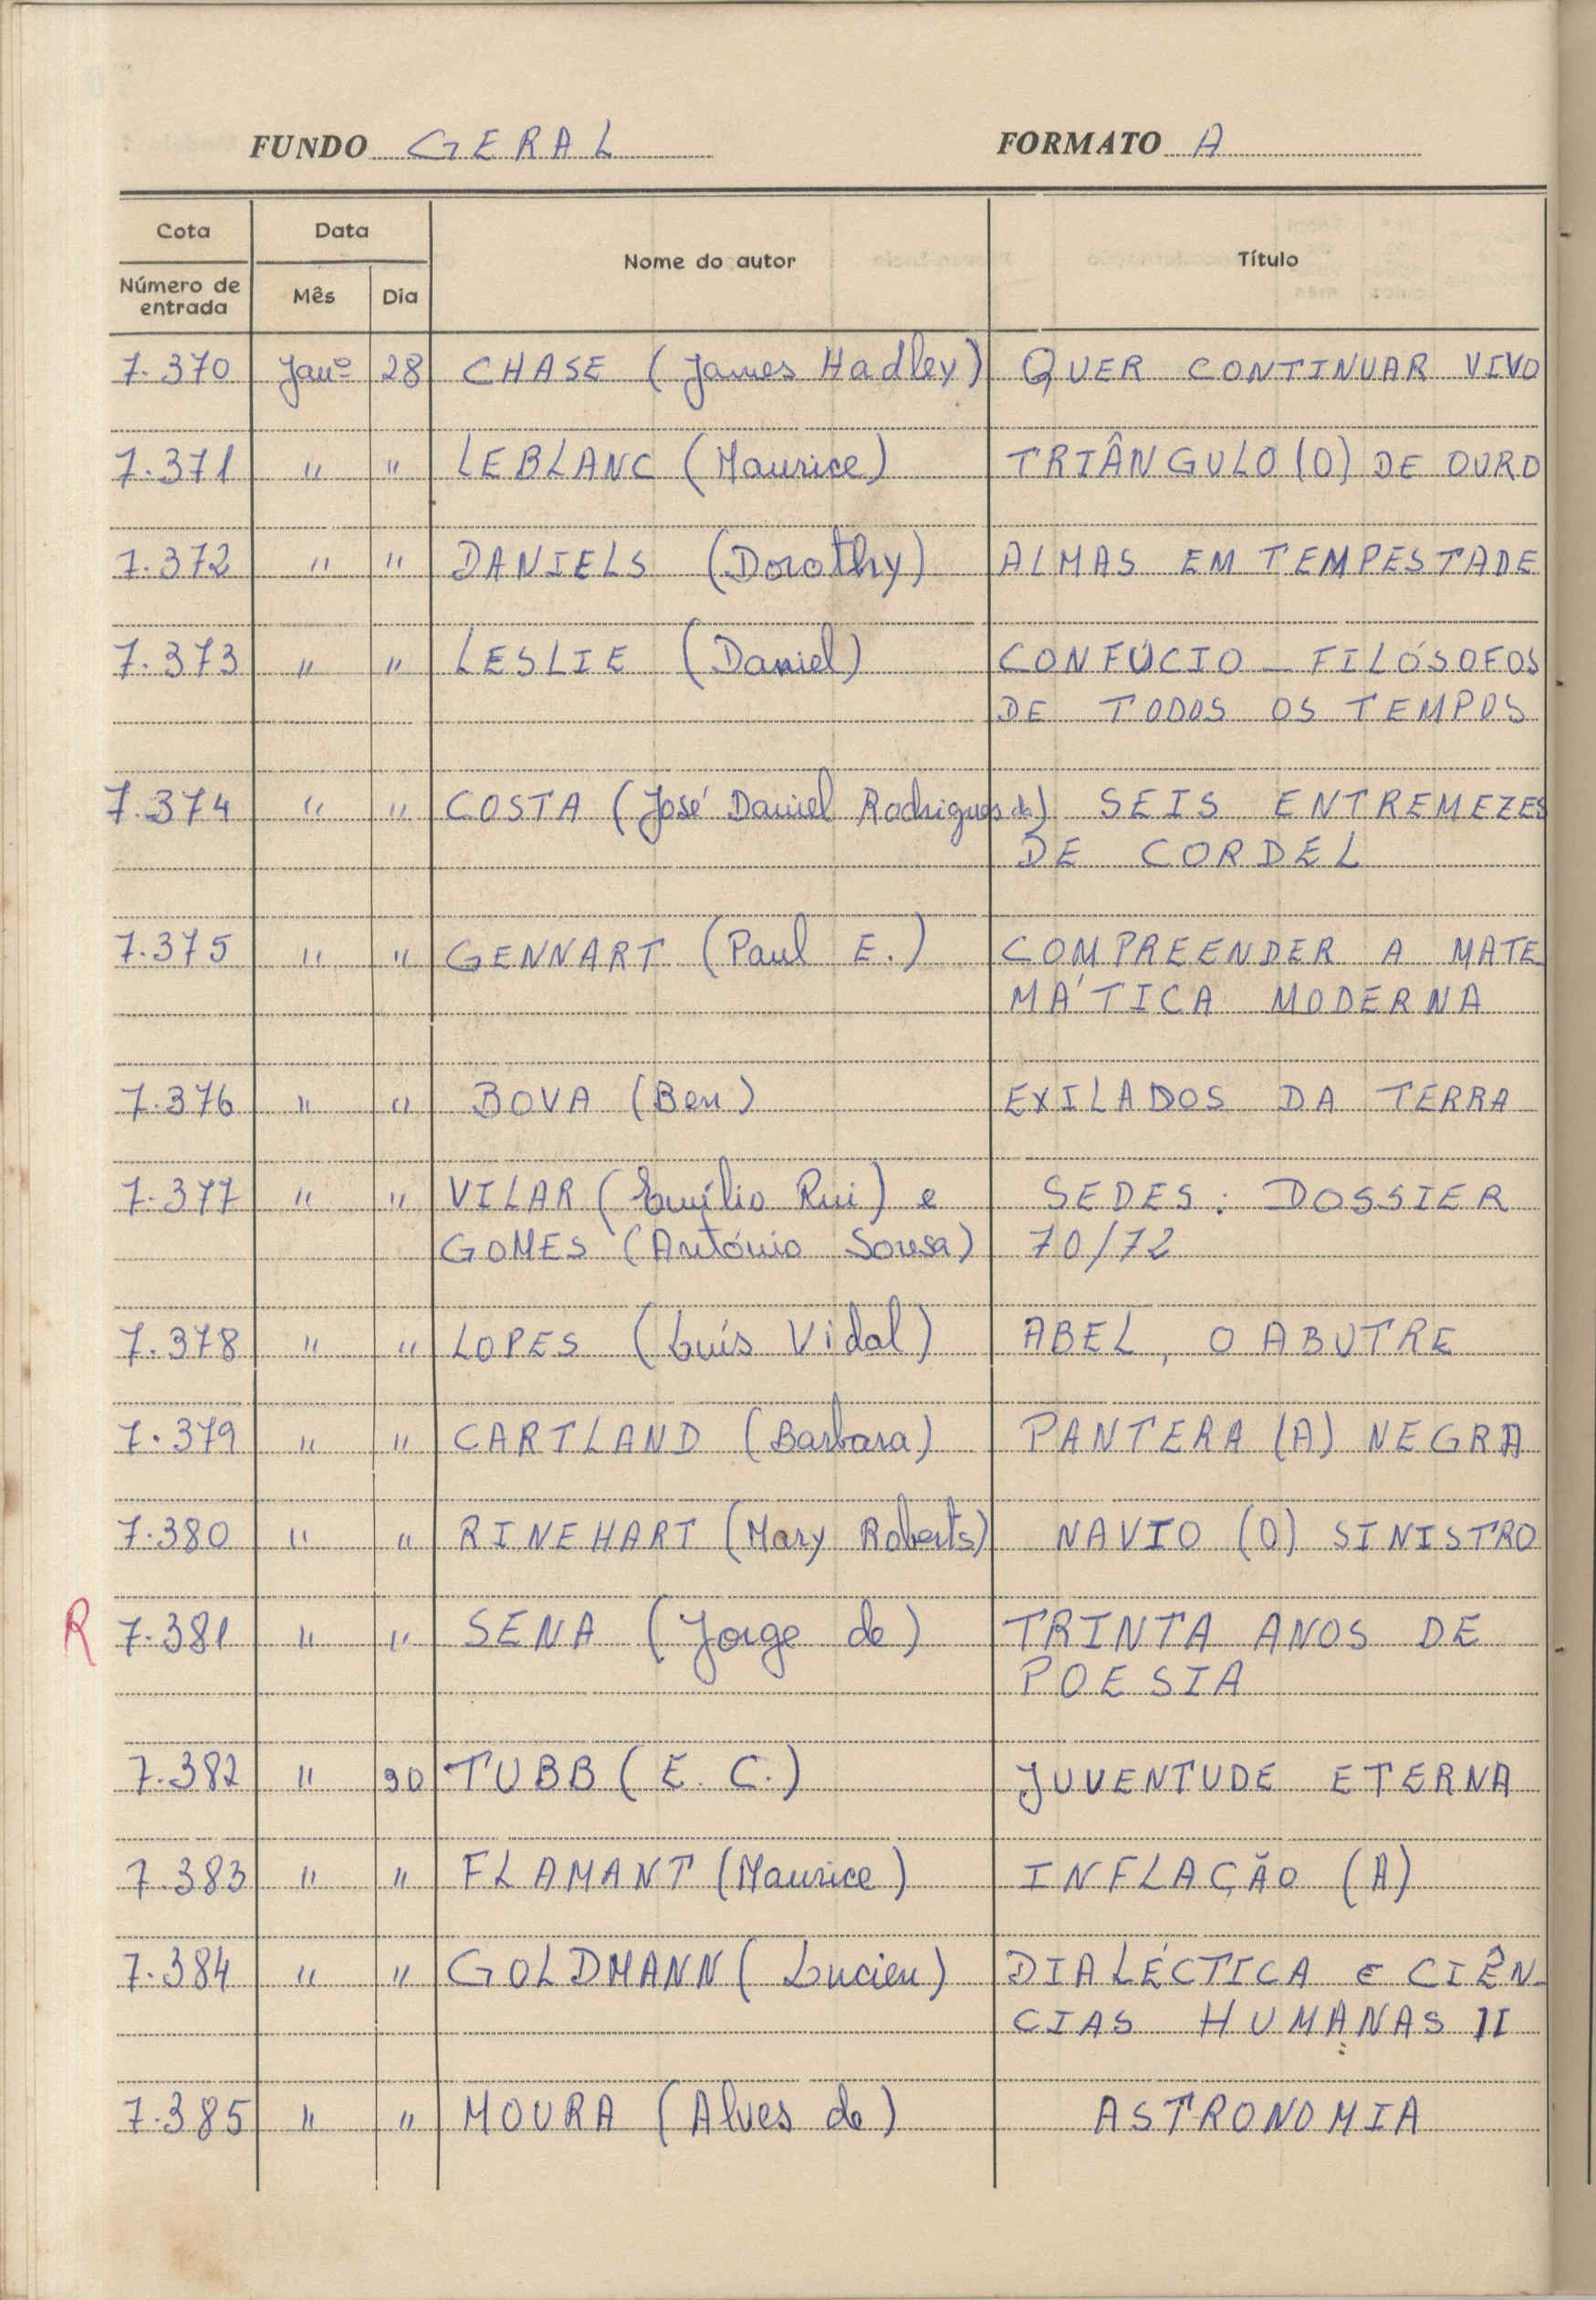 FUNDO GERAL FORMATO A
Cota Data Nome do autor Título
Número de entrada Mês Dia
7.370 Janº 28 CHASE (James Hadley) QUER CONTINUAR VIVO
7.371 " " LEBLANC (Maurice) TRIÂNGULO (O) DE OURO
7.372 " " DANIELS (Dorothy) ALMAS EM TEMPESTADE
7.373 " " LESLIE (Daniel) CONFÚCIO - FILÓSOFOS
DE TODOS OS TEMPOS
7.374 " " COSTA (José Daniel Rodrigues da) SEIS ENTREMEZES
DE CORDEL
7.375 " " GENNART (Paul E.) COMPREENDER A MATE
MÁTICA MODERNA
7.376 " " BOVA (Ben) EXILADOS DA TERRA
7.377 " " VILAR (Emílio Rui) e SEDES: DOSSIER
GOMES (António Sousa) 70/72
7.378 " " LOPES (Luís Vidal) ABEL, O ABUTRE
7.379 " " CARTLAND (Barbara) PANTERA (A) NEGRA
7.380 " " RINEHART (Mary Roberts) NAVIO (O) SINISTRO
R 7.381 " " SENA (Jorge de) TRINTA ANOS DE
POESIA
7.382 " 30 TUBB (E. C.) JUVENTUDE ETERNA
7.383 " " FLAMANT (Maurice) INFLAÇÃO (A)
7.384 " " GOLDMANN (Lucien) DIALÉCTICA E CIÊN-
CIAS HUMANAS II
7.385 " " MOURA (Alves de) ASTRONOMIA